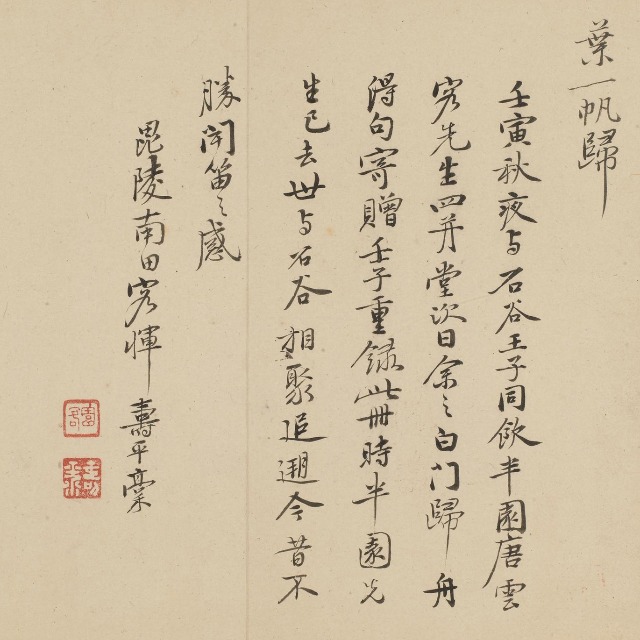 葉一帆歸
壬寅秋夜与石谷王子同飲半園唐雲
客先生四并堂次日余之白门歸舟
得句寄贈壬子重録此冊時半園先
生已去世与石谷相聚追遡今昔不
勝聞笛之感
毘陵南田客惲壽平稾